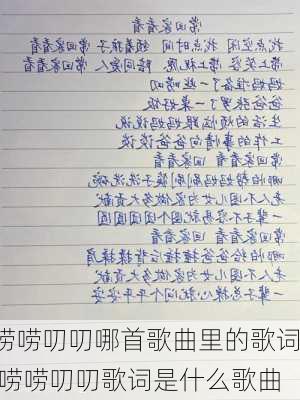 常回家看看
找点空闲 找点时间 领着孩子 常回家看看
带上笑容 带上祝愿 陪同爱人 常回家看看
妈妈准备了一些唠叨
爸爸张罗了一桌好饭
生活的烦恼跟妈妈说说
工作的事情向爸爸谈谈
常回家看看 常回家看看
哪怕帮妈妈刷刷筷子洗洗碗
老人不图儿女为家做多大贡献
一辈子不容易就图个团团圆圆
常回家看看 常回家看看
哪怕给爸爸捶捶后背揉揉肩
老人不图儿女为家做多大贡献
一辈子总操心就问个平平安安
唠唠叨叨哪首歌曲里的歌词
唠唠叨叨歌词是什么歌曲